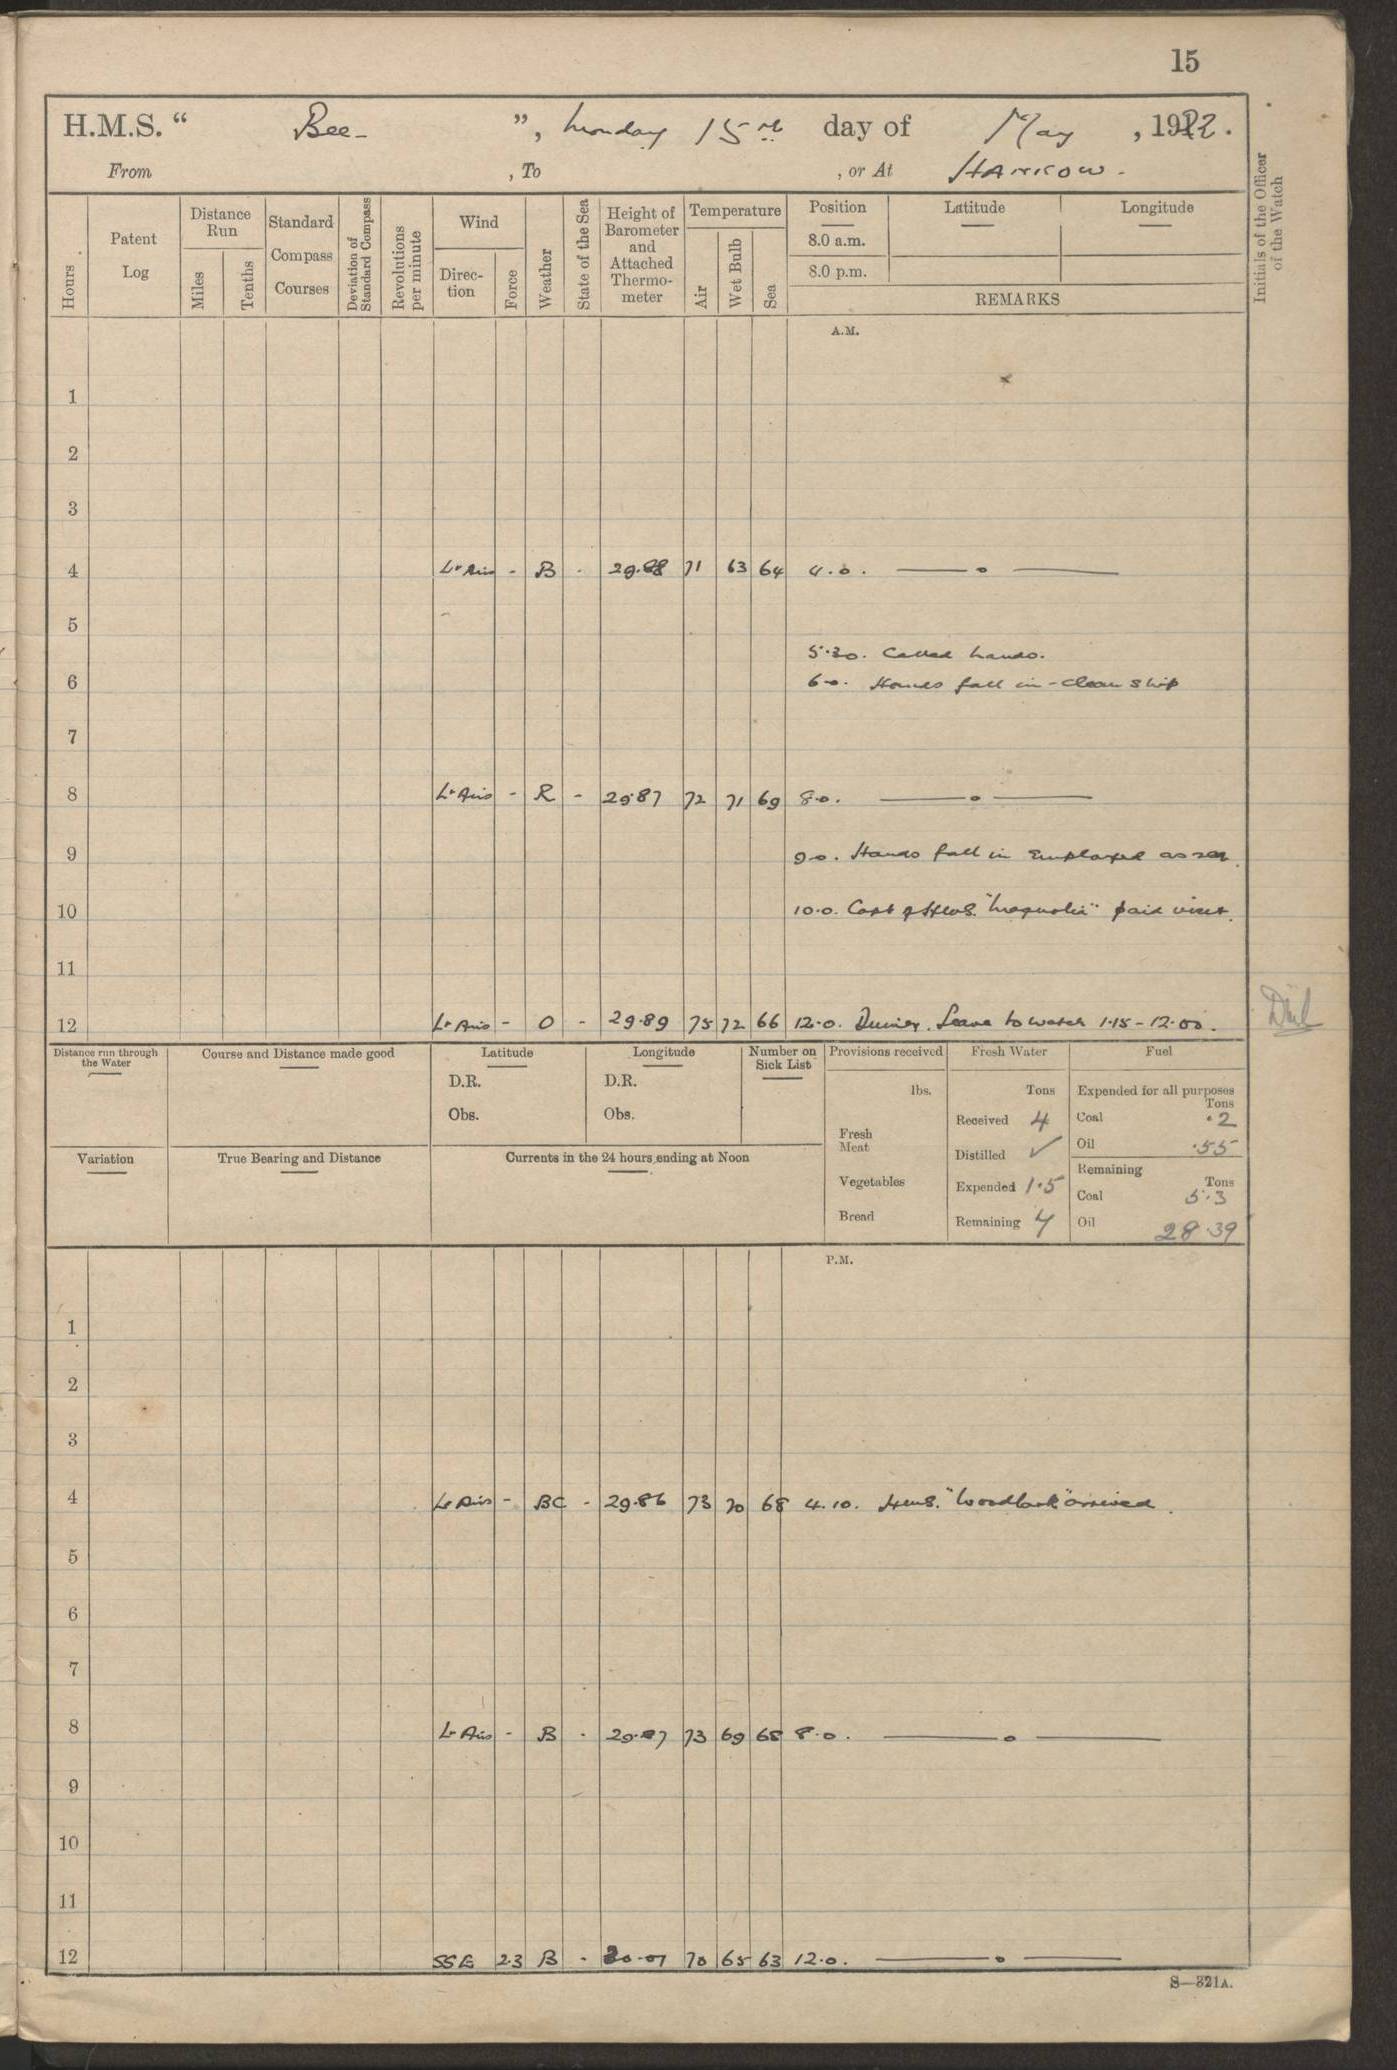 15
H.M.S. " Bee- ", Monday 15th day of May , 1922.
From , To , or At HANKOW.
Hours
Patent Log
Distance Run
Miles
Tenths
Standard Compass Courses
Deviation of Standard Compass
Revolutions per minute
Wind
Direc- tion
Force
Weather
State of the Sea
Height of Barometer and Attached Thermo- meter
Temperature
Air
Wet Bulb
Sea
Position
8.0 a.m.
8.0 p.m.
Latitude
Longitude
REMARKS
Initials of the Officer of the Watch
A.M.
1
2
3
4 Lt Airs - B - 29.88 71 63 64 4.0. — o —
5
5.30. Called hands.
6 6-0. Hands fall in - Clean ship
7
8 Lt Airs - R - 29.87 72 71 69 8.0. — o —
9 9-0. Hands fall in Employed as req.
10 10.0. Capt of H.M.S. "Magnolia" paid visit.
11
12 Lt Airs - O - 29.89 75 72 66 12.0. Dinner. Leave to watch 1.15 - 12.00.
Distance run through the Water
Course and Distance made good
Latitude
D.R.
Obs.
Longitude
D.R.
Obs.
Number on Sick List
Provisions received
lbs.
Fresh Meat
Vegetables
Bread
Fresh Water
Tons
Received 4
Distilled ✓
Expended 1.5
Remaining 4
Fuel
Expended for all purposes
Tons
Coal .2
Oil .55
Remaining
Tons
Coal 5.3
Oil 28.39
Variation
True Bearing and Distance
Currents in the 24 hours ending at Noon
P.M.
1
2
3
4 Lt Airs - BC - 29.86 73 70 68 4.10. H.M.S. "Woodlark" arrived.
5
6
7
8 Lt Airs - B - 29.87 73 69 68 8.0. — o —
9
10
11
12 SSE 2.3 B - 30.01 70 65 63 12.0. — o —
S—321A.